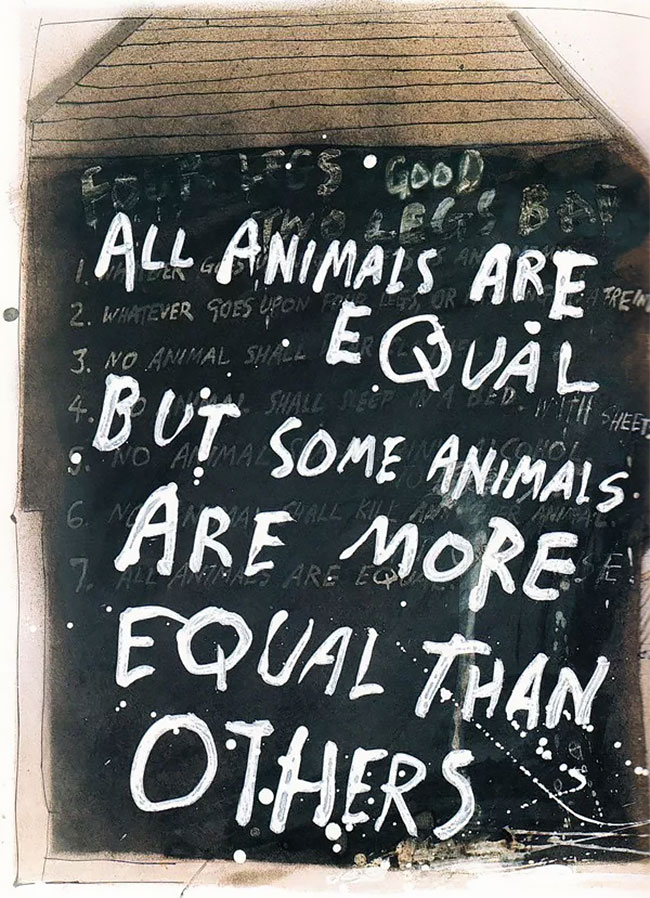 FOUR LEGS GOOD
TWO LEGS BAD
ALL ANIMALS ARE
EQUAL
BUT SOME ANIMALS
ARE MORE
EQUAL THAN
OTHERS
1. WHATEVER GOES
2. WHATEVER GOES UPON FOUR LEGS, OR
3. NO ANIMAL SHALL
4. NO ANIMAL SHALL SLEEP IN A BED. WITH SHEETS
5. NO ANIMAL ALCOHOL
6. NO ANIMAL SHALL KILL ANY OTHER ANIMAL.
7. ALL ANIMALS ARE EQUAL.